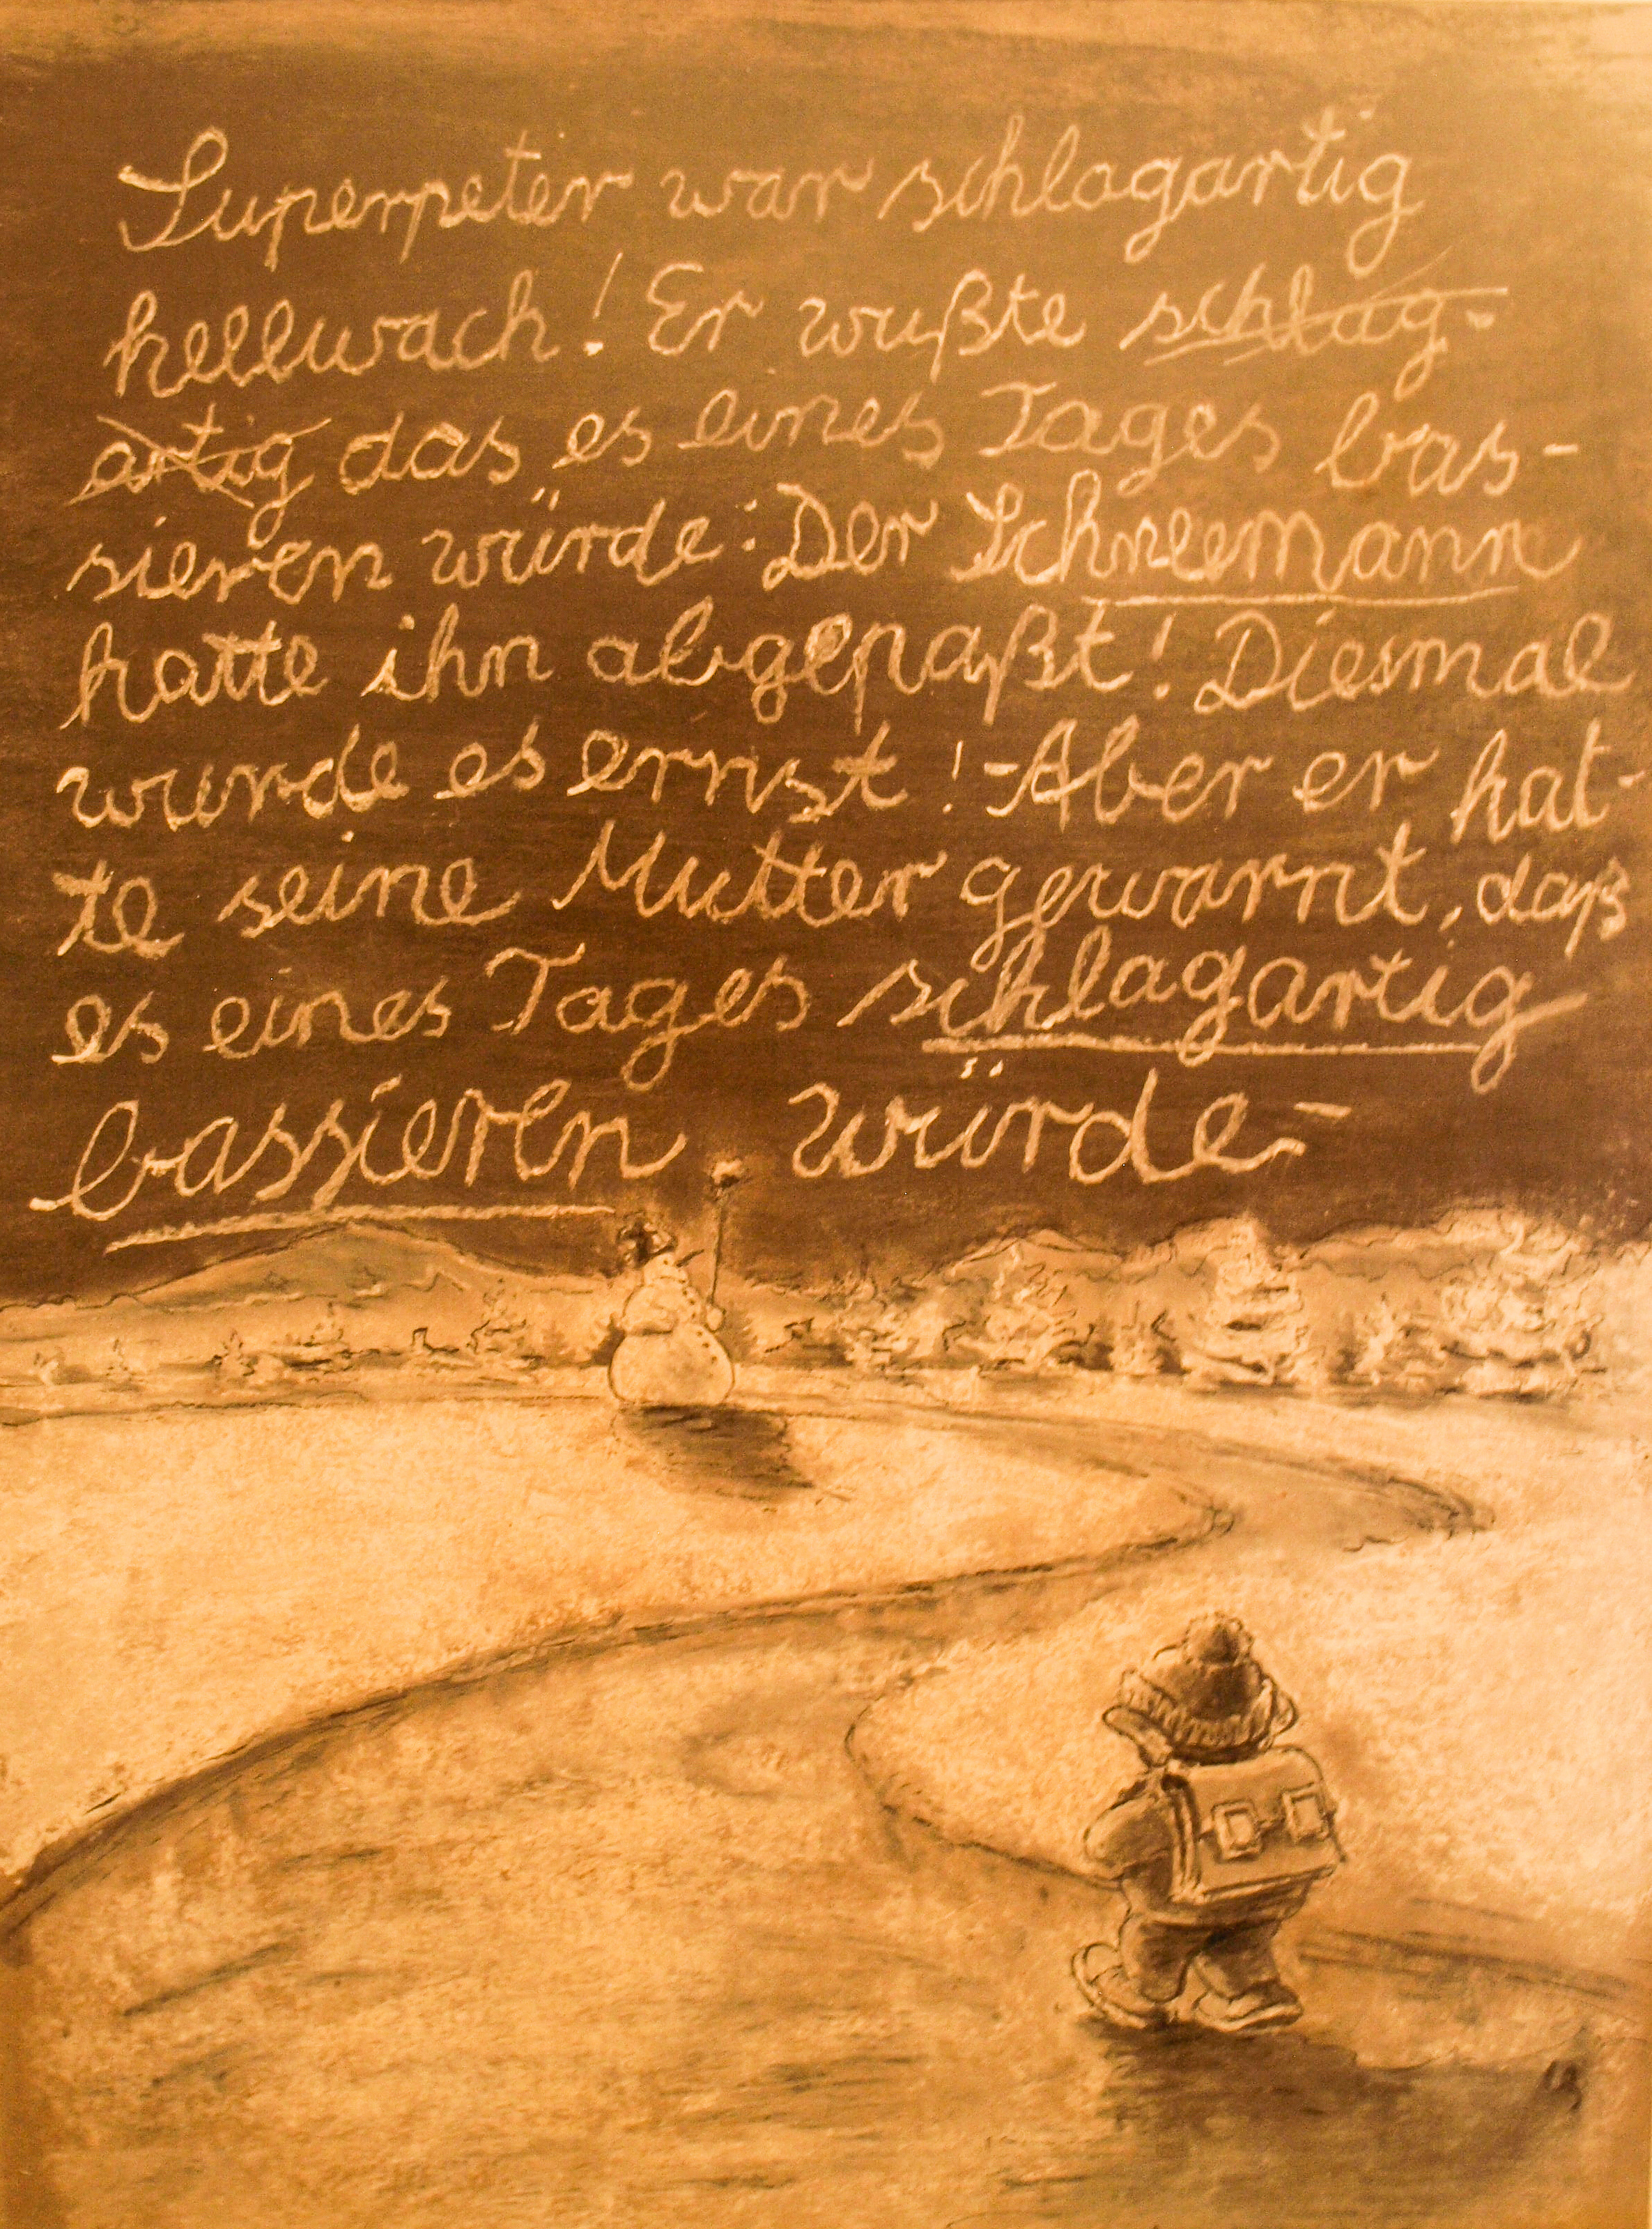 Superpeter war schlagartig
hellwach! Er wußte schlag-
artig das es eines Tages bas-
sieren würde: Der Schneemann
hatte ihn abgepaßt! Diesmal
wurde es ernst! - Aber er hat-
te seine Mutter gewarnt, daß
es eines Tages schlagartig
bassieren würde-